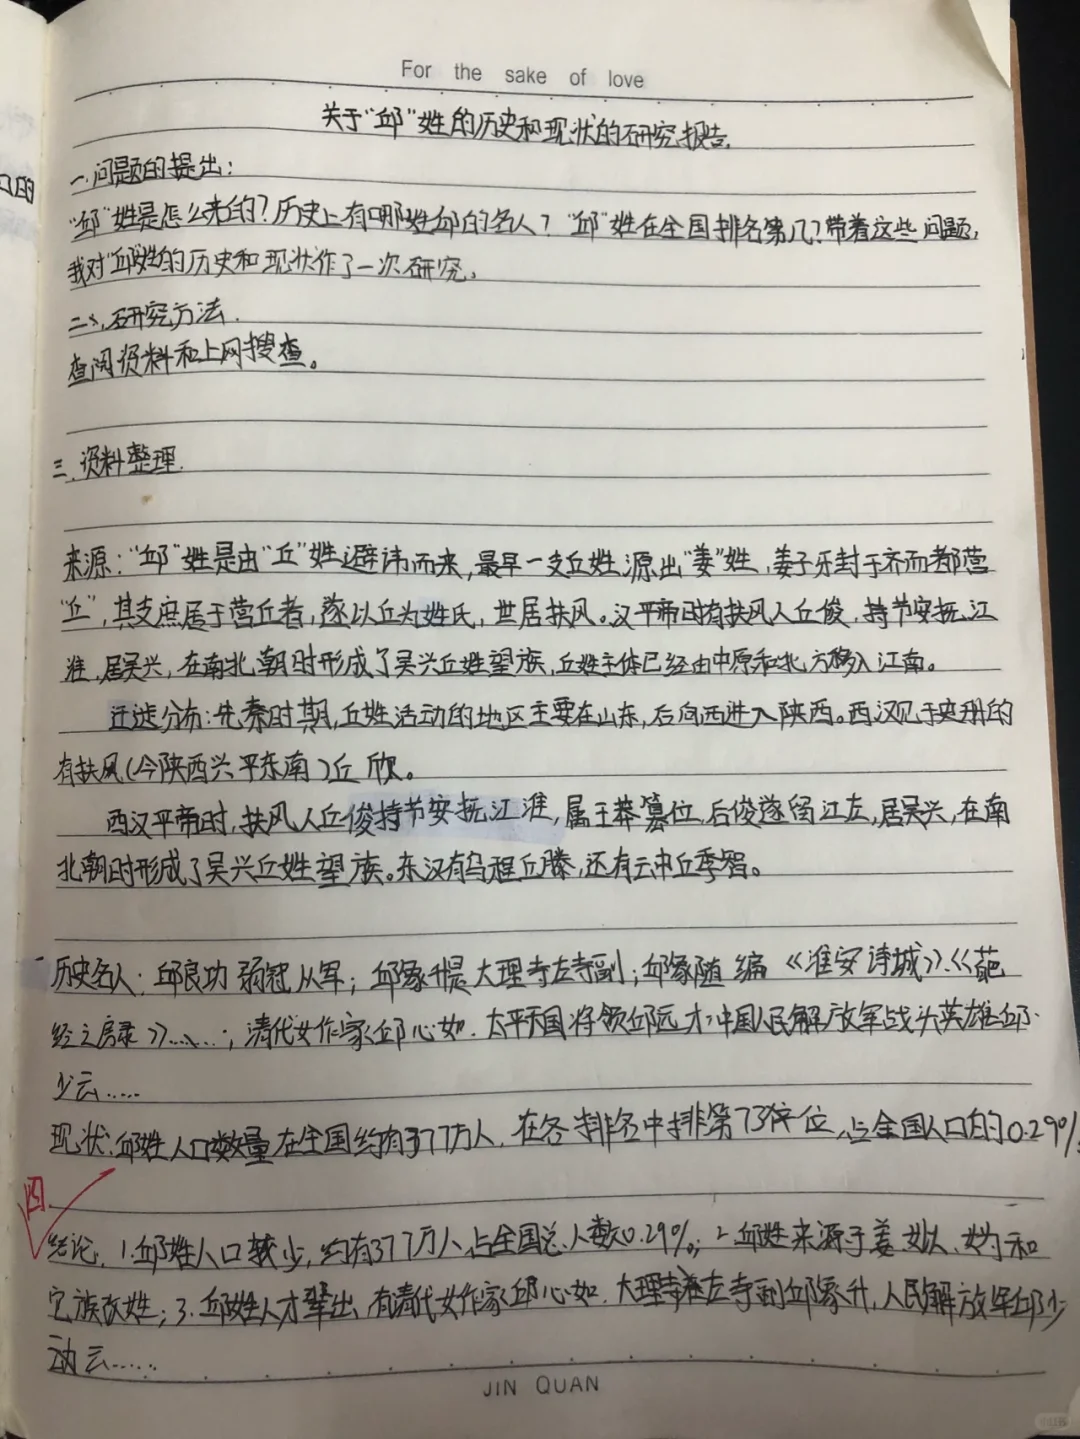 For the sake of love
关于“邱”姓的历史和现状的研究报告
一.问题的提出:
口的
“邱”姓是怎么来的?历史上有哪姓邱的名人?“邱”姓在全国排名第几?带着这些问题,
我对“邱姓的历史和现状作了一次研究。
二、研究方法.
查阅资料和上网搜查。
三.资料整理.
来源:“邱”姓是由“丘”姓避讳而来,最早一支丘姓源出“姜”姓,姜子乐封于齐而都营
“丘”,其支庶居于营丘者,遂以丘为姓氏,世居扶风。汉平帝时有扶风人丘俊,持节安抚江
淮,居吴兴,在南北朝时形成了吴兴丘姓望族,丘姓主体已经由中原和北方移入江南。
迁徙分布:先秦时期,丘姓活动的地区主要在山东,后向西进入陕西。西汉见于史册的
有扶风(今陕西兴平东南)丘欣。
西汉平帝时,扶风人丘俊持节安抚江淮,属王莽篡位,后俊遂留江左,居吴兴,在南
北朝时形成了吴兴丘姓望族。东汉有乌程丘滕,还有云中丘季智。
历史名人:邱良功弱冠从军;邱象升是大理寺左寺副;邱象随编《淮安诗城》、《葩
经之房录》……;清代女作家邱心如.太平天国将领邱远才;中国人民解放军战头英雄邱·
少云……
现状:邱姓人口数量在全国约有377万人,在各排名中排第73位,占全国人口的0.29%
四
结论,1.邱姓人口较少,约有377万人,占全国总人数0.29%;2.邱姓来源于姜姒、妫和
它族改姓;3.邱姓人才辈出,有清代女作家邱心如.大理寺左寺副邱象升,人民解放军邱少
动云……
JIN QUAN
小红书